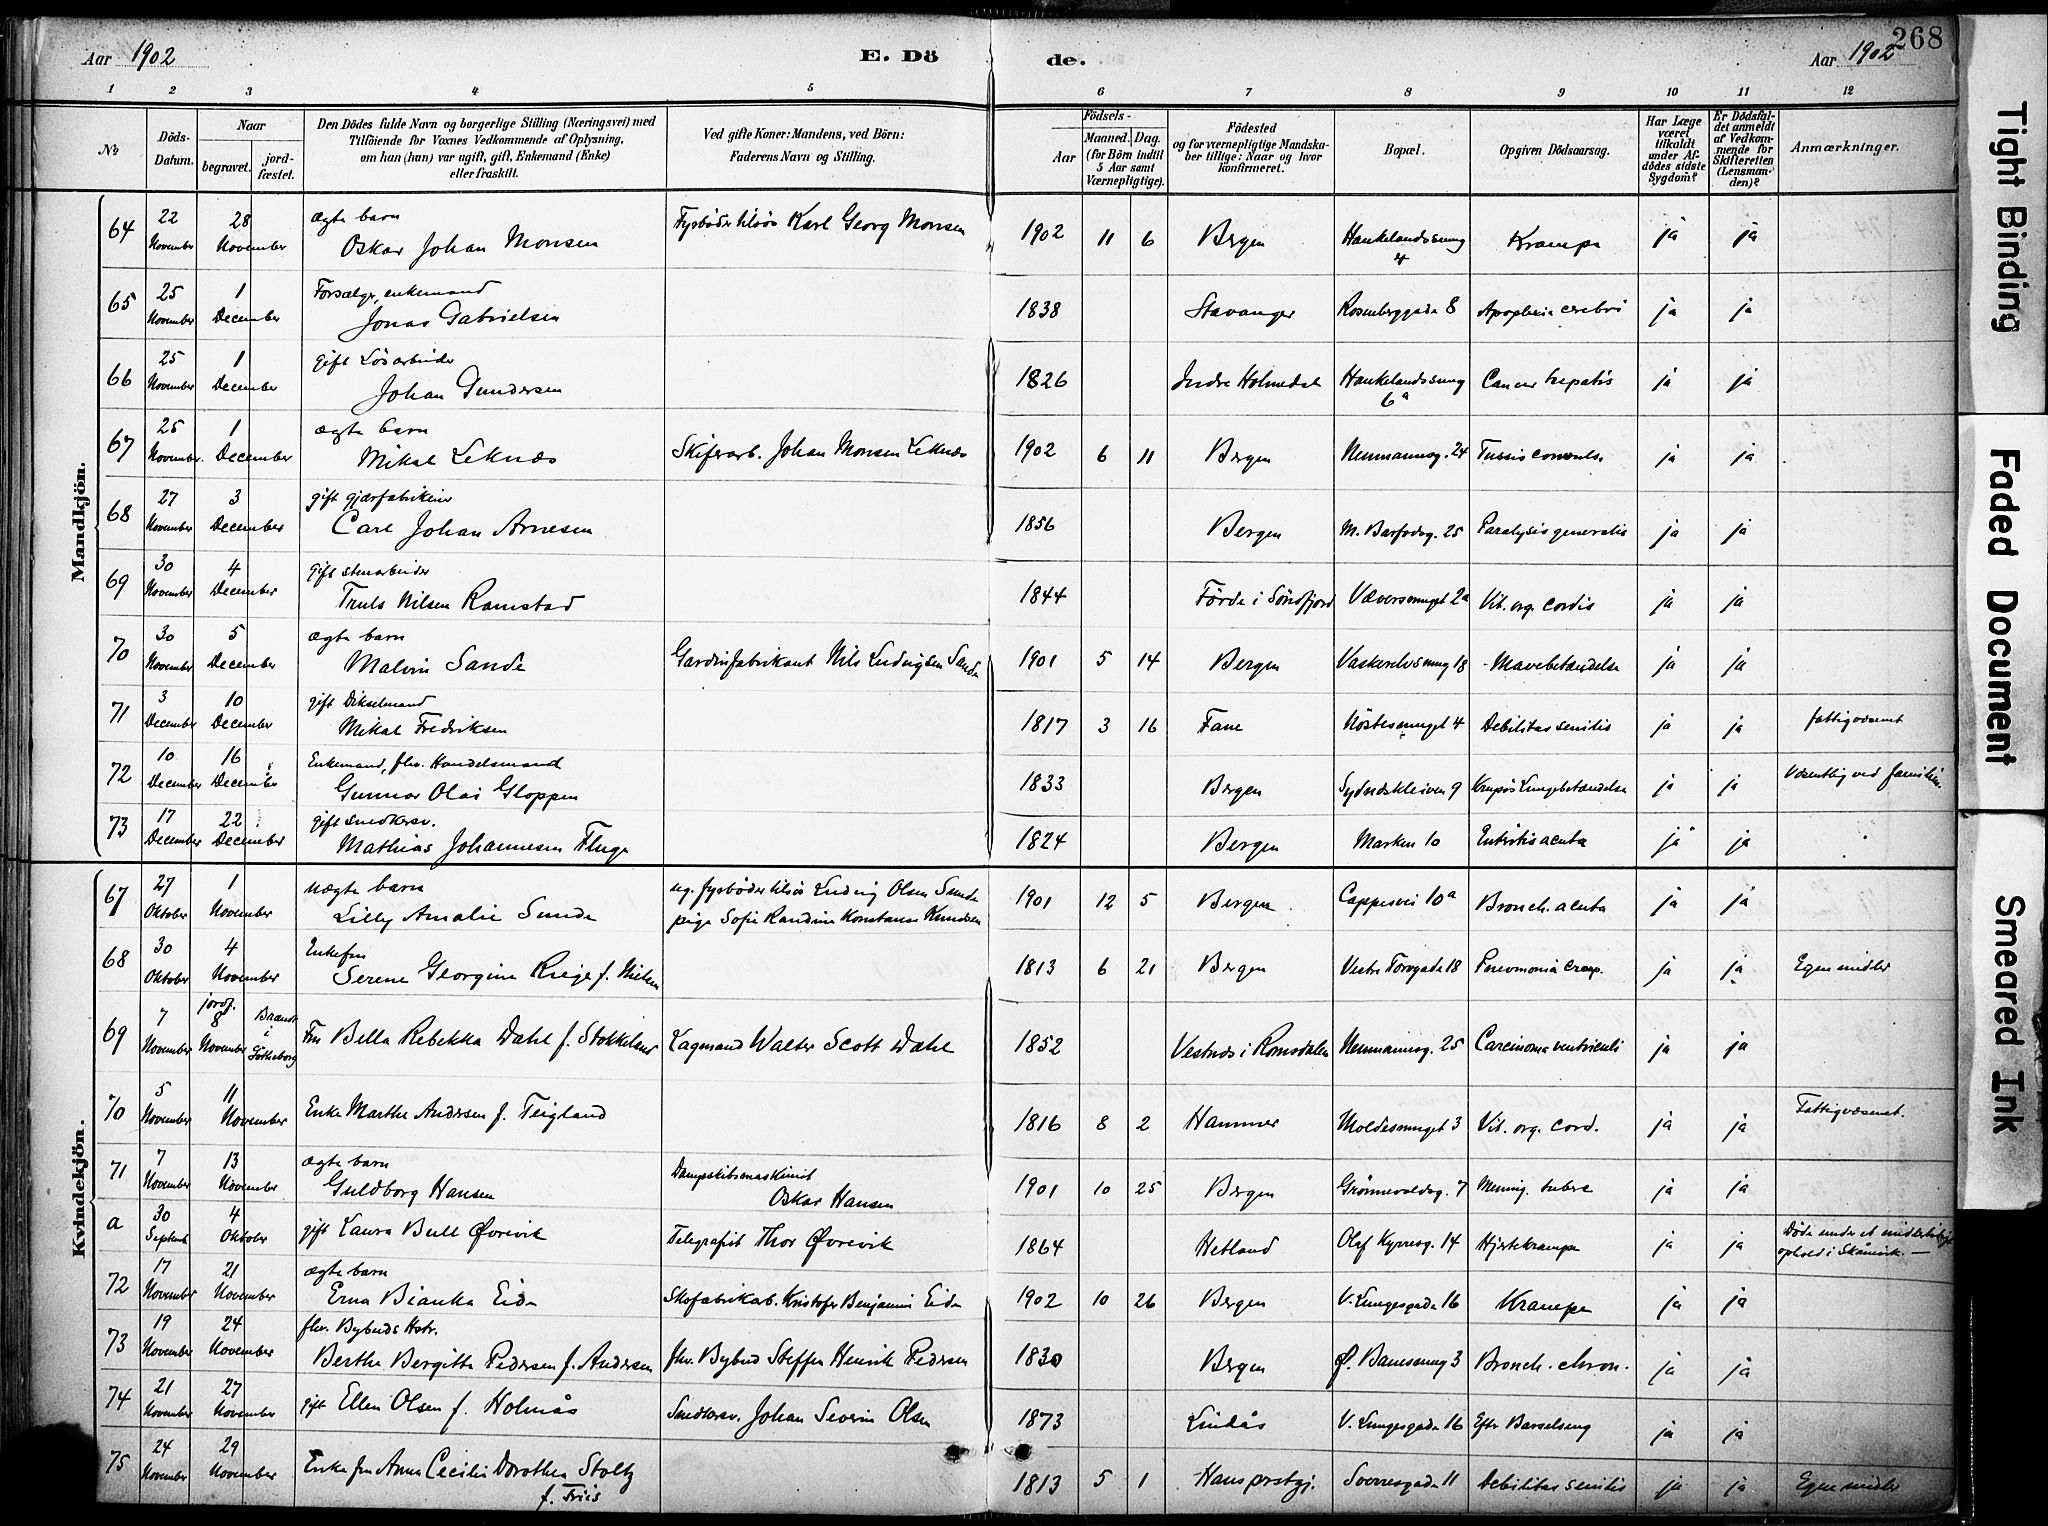 Aar 1902
E. Dö
de.
Aar 1902
268
1 2 3 4 5 6 7 8 9 10 11 12
№
Döds-Datum.
Naar
begravet. jordfæstet.
Den Dödes fulde Navn og borgerlige Stilling (Næringsvei) med
Tilföiende for Voxnes Vedkommende af Oplysning,
om han (hun) var ugift, gift, Enkemand (Enke)
eller fraskilt.
Ved gifte Koner: Mandens, ved Börn:
Faderens Navn og Stilling.
Födsels-
Aar Maaned. Dag.
(for Börn indtil
5 Aar samt
Værnepligtige).
Födested
og for værnepligtige Mandskaber tillige: Naar og hvor
konfirmeret.
Bopæl.
Opgiven Dödsaarsag.
Har Læge
været
tilkaldt
under Afdödes sidste
Sygdom?
Er Dödsfaldet anmeldt
af Vedkommende for
Skifteretten
(Lensmanden)?
Anmærkninger.
Mandkjön.
64 22 November 28 November ægte barn Oskar Johan Monsen Fyrbøder tilsøs Karl Georg Monsen 1902 11 6 Bergen Haukelandssmug 4 Krampe ja ja
65 25 November 1 December Forsælge, enkemand Jonas Gabrielsen 1838 Stavanger Rosenberggade 8 Apoplexia cerebri ja ja
66 25 November 1 December gift Løsarbeider Johan Gundersen 1826 Indre Holmedal Haukelandssmug 6a Cancer hepatis ja ja
67 25 November. 1 December ægte barn Mikal Leknæs Skiferarb. Johan Monsen Leknæs 1902 6 11 Bergen Neumannsg. 24 Tussis convuls. ja ja
68 27 November 3 December gift gjærfabrikeier Carl Johan Arnesen 1856 Bergen M. Barfodsg. 25 Paralysis generalis ja ja
69 30 November 4 December gift stenarbeider Truls Nilsen Ramstad 1844 Førde i Søndfjord Væversmuget 2a Vit. org. cordis ja ja
70 30 November 5 December ægte barn Malvin Sande Gardinfabrikant Nils Ludvigsen Sande 1901 5 14 Bergen Vaskerelvsmug 18 Mavebetændelse ja ja
71 3 December 10 December gift Dikselmand Mikal Fredriksen 1817 3 16 Fane Nøstesmuget 4 Debilitas senilis ja ja fattigvæsenet
72 10 December 16 December Enkemand, fhv. Handelsmand Gunnar Olai Gloppen 1833 Bergen Sydneskleiven 9 Krupøs Lungebetændelse ja ja Væsentlig ved familien
73 17 December 22 December gift snedkersv. Mathias Johannesen Fluge 1824 Bergen Marken 10 Entiritis acuta ja ja
Kvindekjön.
67 27 Oktober 1 November uægte barn Lilly Amalie Sunde ug. fyrbøder tilsøs Ludvig Olsen Sunde
pige Sofie Randine Konstanse Knudsen 1901 12 5 Bergen Cappesvei 10a Bronch. acuta ja ja
68 30 Oktober 4 November Enkefru Serene Georgine Kriege f. Nielsen 1813 6 21 Bergen Vestre Torvgade 18 Pneumonia croup. ja ja Egne midler
69 7 November jordf. 8 November Brændt i Gøtheborg Fru Bella Rebekka Dahl f. Stokkeland Lagmand Walter Scott Dahl 1852 Vestnes i Romsdalen Neumannsg. 25 Carcinoma ventriculi ja ja
70 5 November 11 November Enke Marthe Andersen f. Teigland 1816 8 2 Hammer Moldesmuget 3 Vit. org. cord. ja ja Fattigvæsenet.
71 7 November 13 November ægte barn Guldborg Hansen Dampskibsmaskinist Oskar Hansen 1901 10 25 Bergen Grønnevoldsg. 7 Mening. tuberc ja ja
a 30 Septemb 4 Oktober gift Laura Bull Øvrevik Telegrafist Thor Øvrevik 1864 Hetland Olaf Kyrresg. 14 Hjertekrampe ja ja Døde under et midlertidigt
ophold i Skånevik. —
72 17 November 21 November ægte barn Erna Bianka Eide Skofabrikarb. Kristofer Benjamin Eide 1902 10 26 Bergen V. Lungesgade 16 Krampe ja ja
73 19 November 24 November fhv. Bybuds Hstr. Berthe Bergitte Pedersen f. Andersen fhv. Bybud Steffen Henrik Pedersen 1830 Bergen Ø. Banesmug 3 Bronch. chron. ja ja
74 21 November 27 November gift Ellen Olsen f. Holmås Snedkersv. Johan Severin Olsen 1873 Lindås V. Lungesgade 16 Efter Barselseng ja ja
75 24 November 29 November Enke fru Anna Cecilie Dorothea Stoltz f. Friis 1813 5 1 Haus prstgj. Sverresgade 11 Debilitas senilis ja ja Egne midler
Tight Binding
Faded Document
Smeared Ink